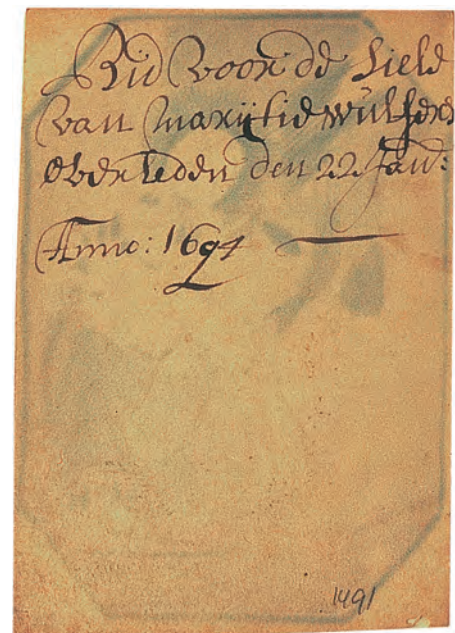 Bid voor de Siele
van Marijtie Wulfers
Overleden den 22 Jan:
Anno: 1694
1491